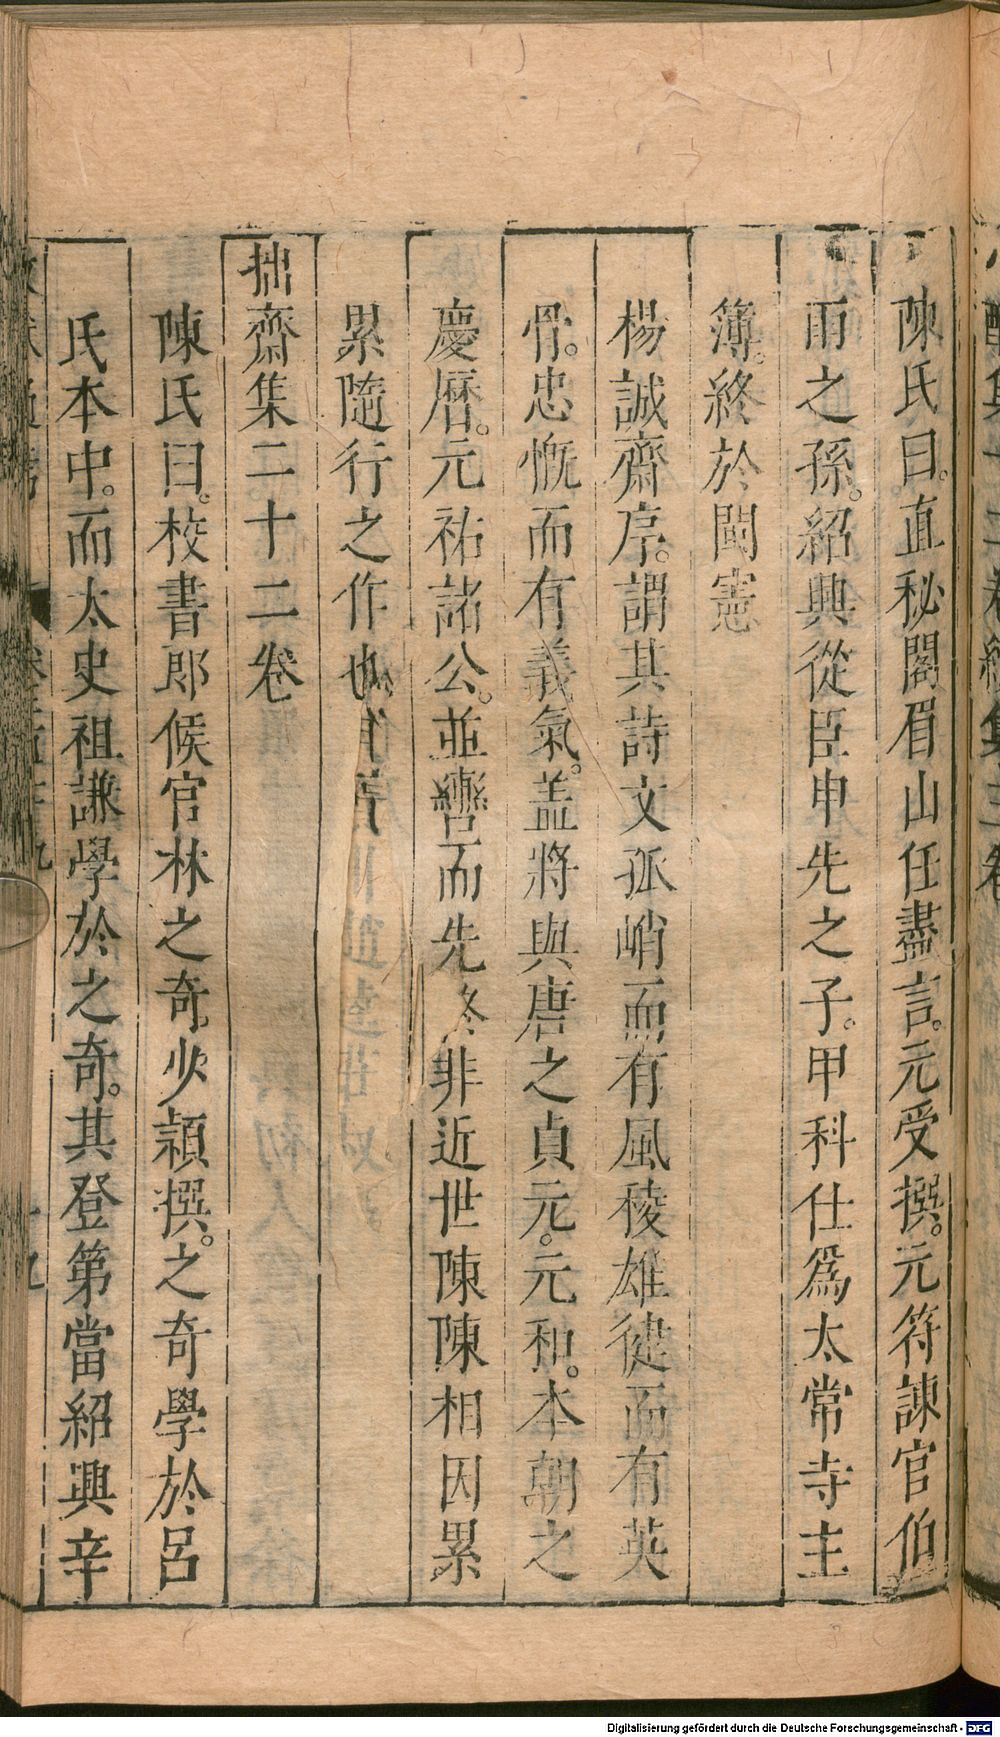 陳氏曰。直秘閣眉山任盡言。元受撰。元符諫官伯
雨之孫。紹興從臣申先之子。甲科仕爲太常寺主
簿。終於閩憲
楊誠齋序。謂其詩文孤峭而有風稜雄健而有英
骨。忠慨而有義氣。盖將與唐之貞元。元和。本朝之
慶曆。元祐諸公。並轡而先終非近世陳陳相因累
累隨行之作也
拙齋集二十二卷
陳氏曰。校書郎候官林之奇少穎撰。之奇學於呂
氏本中。而太史祖謙學於之奇。其登第當紹興辛
Digitalisierung gefördert durch die Deutsche Forschungsgemeinschaft - DFG